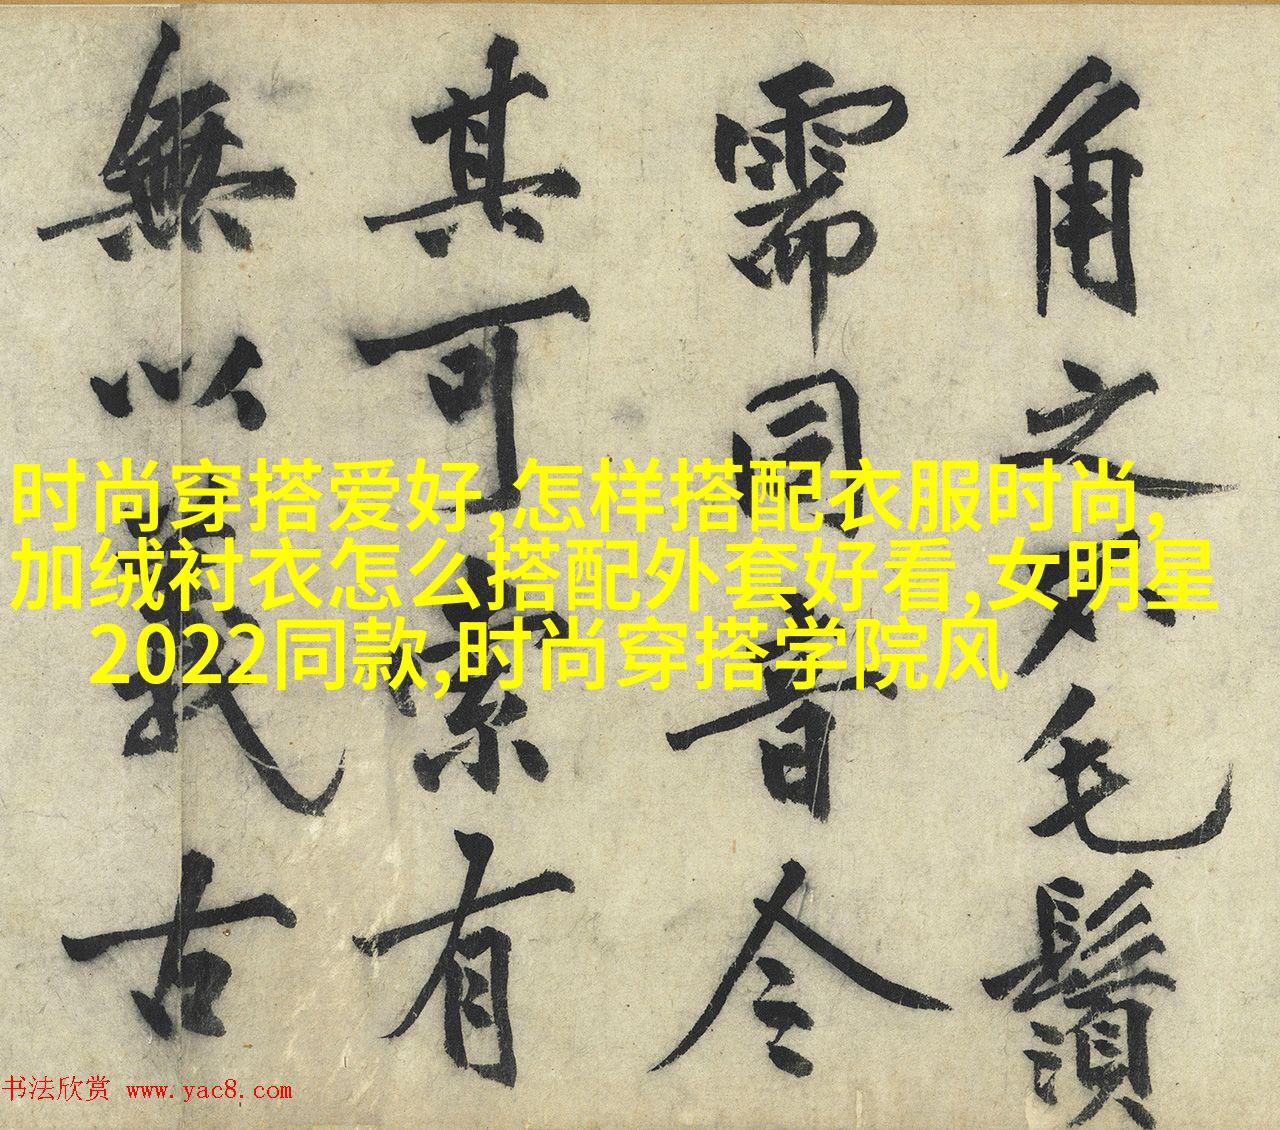 角之不毛鬚
需同音今
其可索有
無以義古
时尚穿搭爱好,怎样搭配衣服时尚,
加绒衬衣怎么搭配外套好看,女明星
2022同款,时尚穿搭学院风
书法欣赏 www.yac8.com